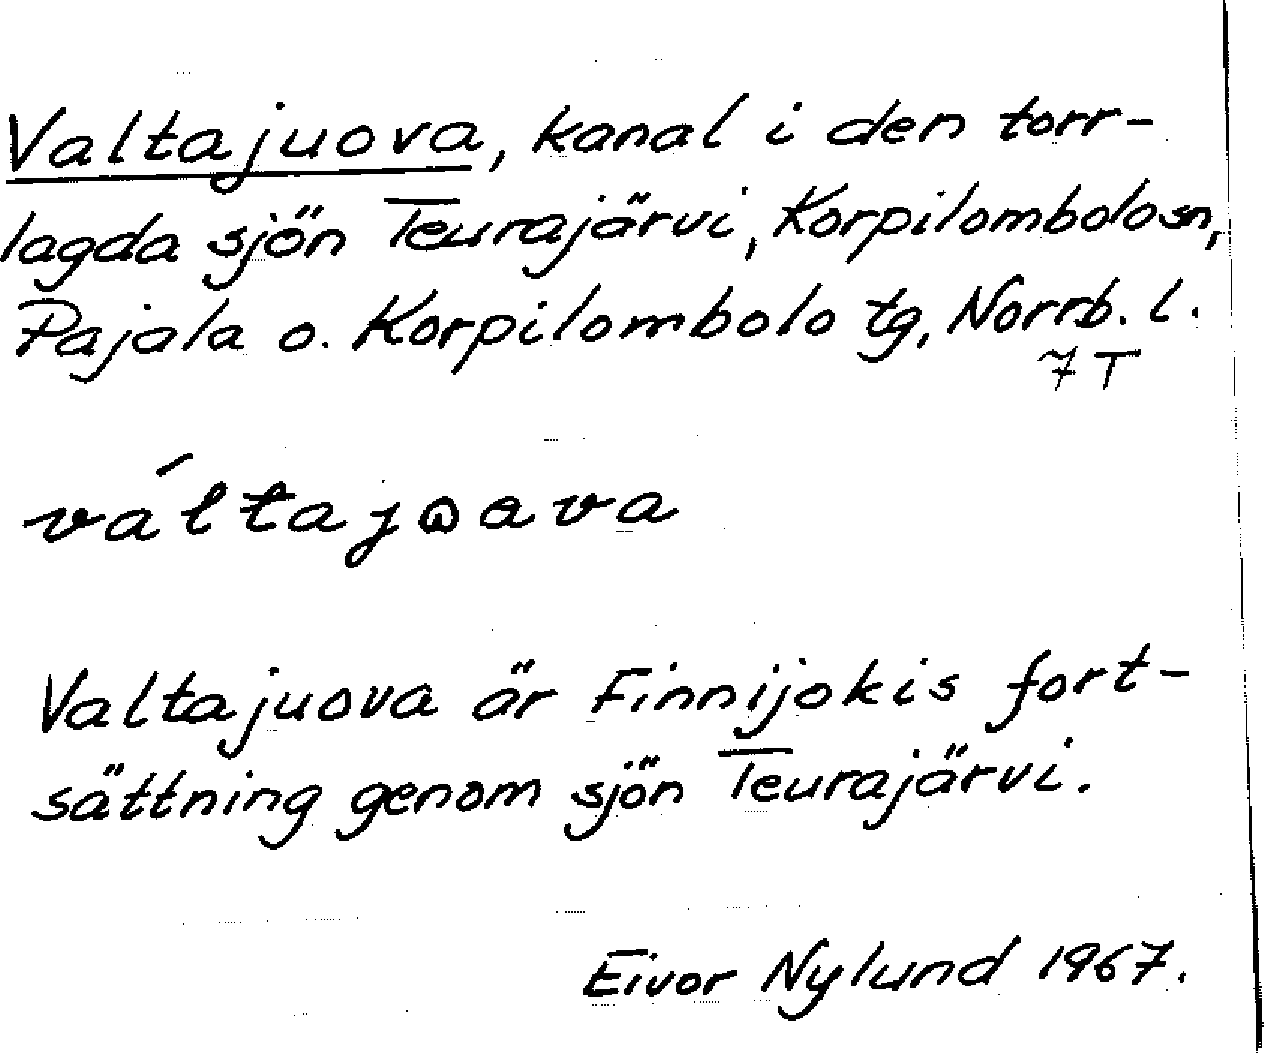 Valtajuova, kanal i den torr-
lagda sjön Teurajärvi, Korpilombolo sn,
Pajala o. Korpilombolo tg, Norrb. l.
7 T
váltajωava
Valtajuova är Finnijokis fort-
sättning genom sjön Teurajärvi.
Eivor Nylund 1967.